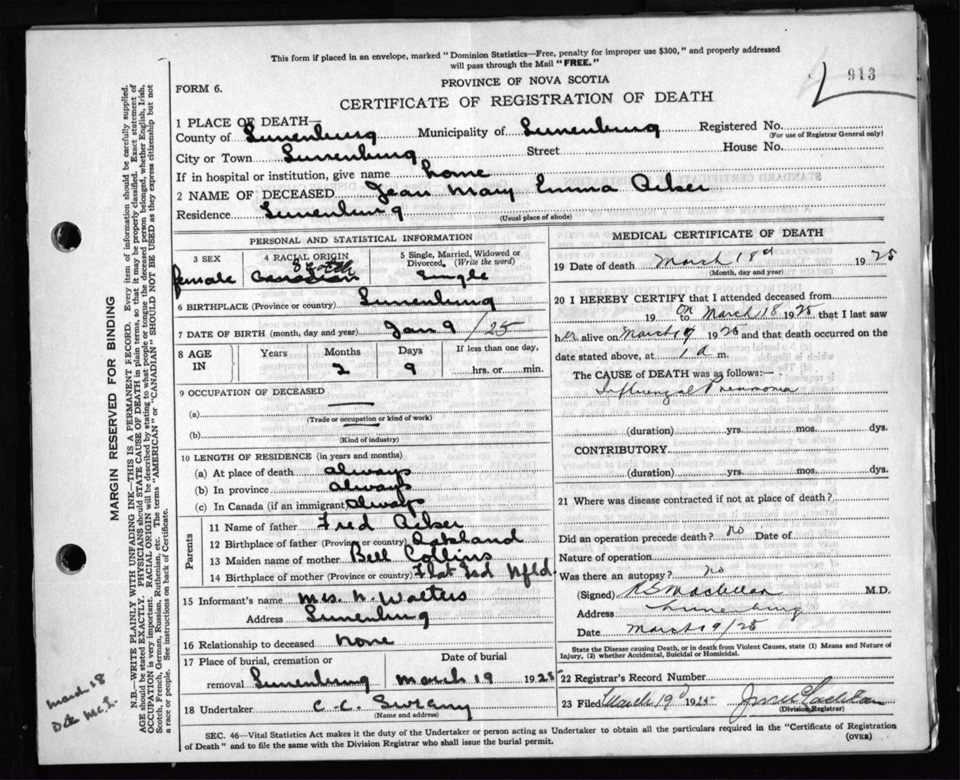 This form if placed in an envelope, marked "Dominion Statistics—Free, penalty for improper use $300," and properly addressed
will pass through the Mail "FREE."
913
PROVINCE OF NOVA SCOTIA
FORM 6.
CERTIFICATE OF REGISTRATION OF DEATH
1 PLACE OF DEATH—
County of Lunenburg Municipality of Lunenburg Registered No.
(For use of Registrar General only)
City or Town Lunenburg Street House No.
If in hospital or institution, give name home
2 NAME OF DECEASED Jean Mary Emma Acker
Residence Lunenburg
(Usual place of abode)
PERSONAL AND STATISTICAL INFORMATION
3 SEX
female
4 RACIAL ORIGIN
Canadian
5 Single, Married, Widowed or
Divorced, (Write the word)
Single
6 BIRTHPLACE (Province or country) Lunenburg
7 DATE OF BIRTH (month, day and year) Jan 9 /25
8 AGE IN
Years
Months 2
Days 9
If less than one day,
hrs. or min.
9 OCCUPATION OF DECEASED
(a)
(Trade or occupation or kind of work)
(b)
(Kind of industry)
10 LENGTH OF RESIDENCE (in years and months)
(a) At place of death always
(b) In province always
(c) In Canada (if an immigrant) always
Parents
11 Name of father Fred Acker
12 Birthplace of father (Province or country) Oakland
13 Maiden name of mother Bell Collins
14 Birthplace of mother (Province or country) Flat Isd Nfld.
15 Informant's name Mrs. N. Walters
Address Lunenburg
16 Relationship to deceased None
17 Place of burial, cremation or Date of burial
removal Lunenburg March 19 1925
18 Undertaker C. C.
(Name and address)
MEDICAL CERTIFICATE OF DEATH
19 Date of death March 18 1925
(Month, day and year)
20 I HEREBY CERTIFY that I attended deceased from
19 on March 18 1925, that I last saw
her alive on March 1925 and that death occurred on the
date stated above, at 1 a m.
The CAUSE of DEATH was as follows:—
Influenzal Pneumonia
(duration) yrs. mos. dys.
CONTRIBUTORY
(duration) yrs. mos. dys.
21 Where was disease contracted if not at place of death?
Did an operation precede death? no Date of
Nature of operation
Was there an autopsy? no
(Signed) M.D.
Address Lunenburg
Date March 19/25
State the Disease causing Death, or in death from Violent Causes, state (1) Means and Nature of
Injury, (2) whether Accidental, Suicidal or Homicidal.
22 Registrar's Record Number
23 Filed March 19 1925
(Division Registrar)
SEC. 46—Vital Statistics Act makes it the duty of the Undertaker or person acting as Undertaker to obtain all the particulars required in the "Certificate of Registration
of Death" and to file the same with the Division Registrar who shall issue the burial permit.
(OVER)
MARGIN RESERVED FOR BINDING
N.B.—WRITE PLAINLY WITH UNFADING INK—THIS IS A PERMANENT RECORD. Every item of information should be carefully supplied.
AGE should be stated EXACTLY. PHYSICIANS should STATE CAUSE OF DEATH in plain terms, so that it may be properly classified. Exact statement of
OCCUPATION is very important. RACIAL ORIGIN will be described by stating to what people or tongue the deceased person belonged, whether English, Irish,
Scotch, French, German, Russian, Ruthenian, etc. The terms "AMERICAN" or "CANADIAN" SHOULD NOT BE USED as they express citizenship but not
a race or people. See instructions on back of Certificate.
March 18